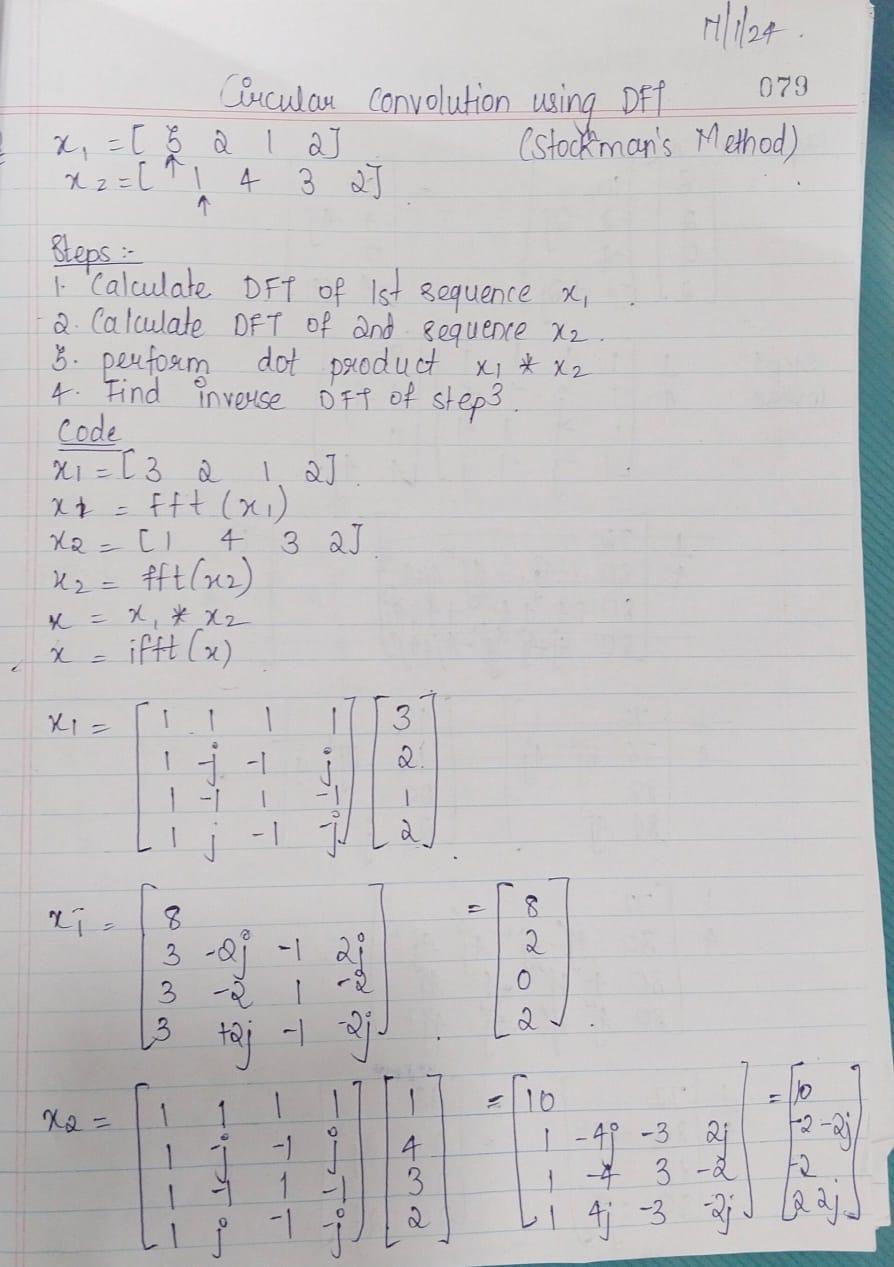 17/1/24.
079
Circular Convolution using DFT
(Stockman's Method)
x₁ = [ 3 2 1 2]
↑
x₂ = [ 1 4 3 2]
↑
Steps :-
1. Calculate DFT of 1st sequence x₁
2. Calculate DFT of 2nd sequence x₂.
3. perform dot product x₁ * x₂
4. Find inverse DFT of step3.
Code
x₁ = [3 2 1 2]
x1 = fft (x₁)
x2 = [1 4 3 2]
x₂ = fft(x2)
x = x₁ * x₂
x = ifft (x)
x₁ = [1 1 1 1] [3]
[1 -j -1 j] [2]
[1 -1 1 -1] [1]
[1 j -1 -j] [2]
x₁ = [8] = [8]
[3 -2j -1 2j] [2]
[3 -2 1 -2] [0]
[3 +2j -1 -2j] [2]
x2 = [1 1 1 1] [1] = [10] = [10]
[1 -j -1 j] [4] [1 -4j -3 2j] [-2 -2j]
[1 -1 1 -1] [3] [1 -4 3 -2] [-2]
[1 j -1 -j] [2] [1 4j -3 -2j] [2 2j]